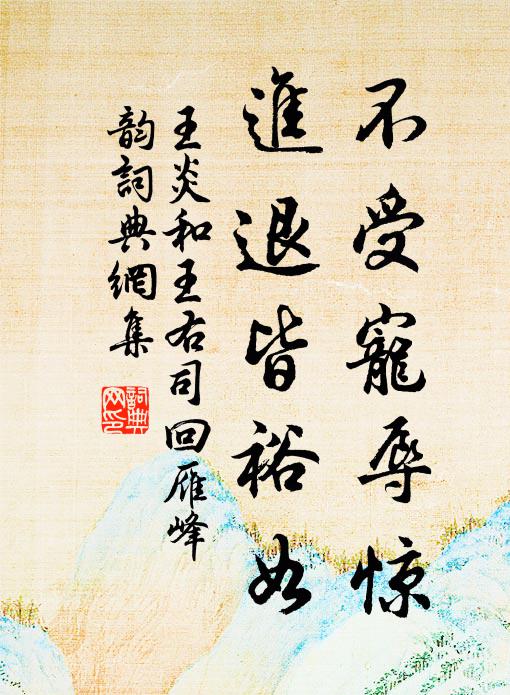 不受寵辱惊
進退皆裕如
王炎和王右司回雁峰
韵詞典網集
詞典
网印